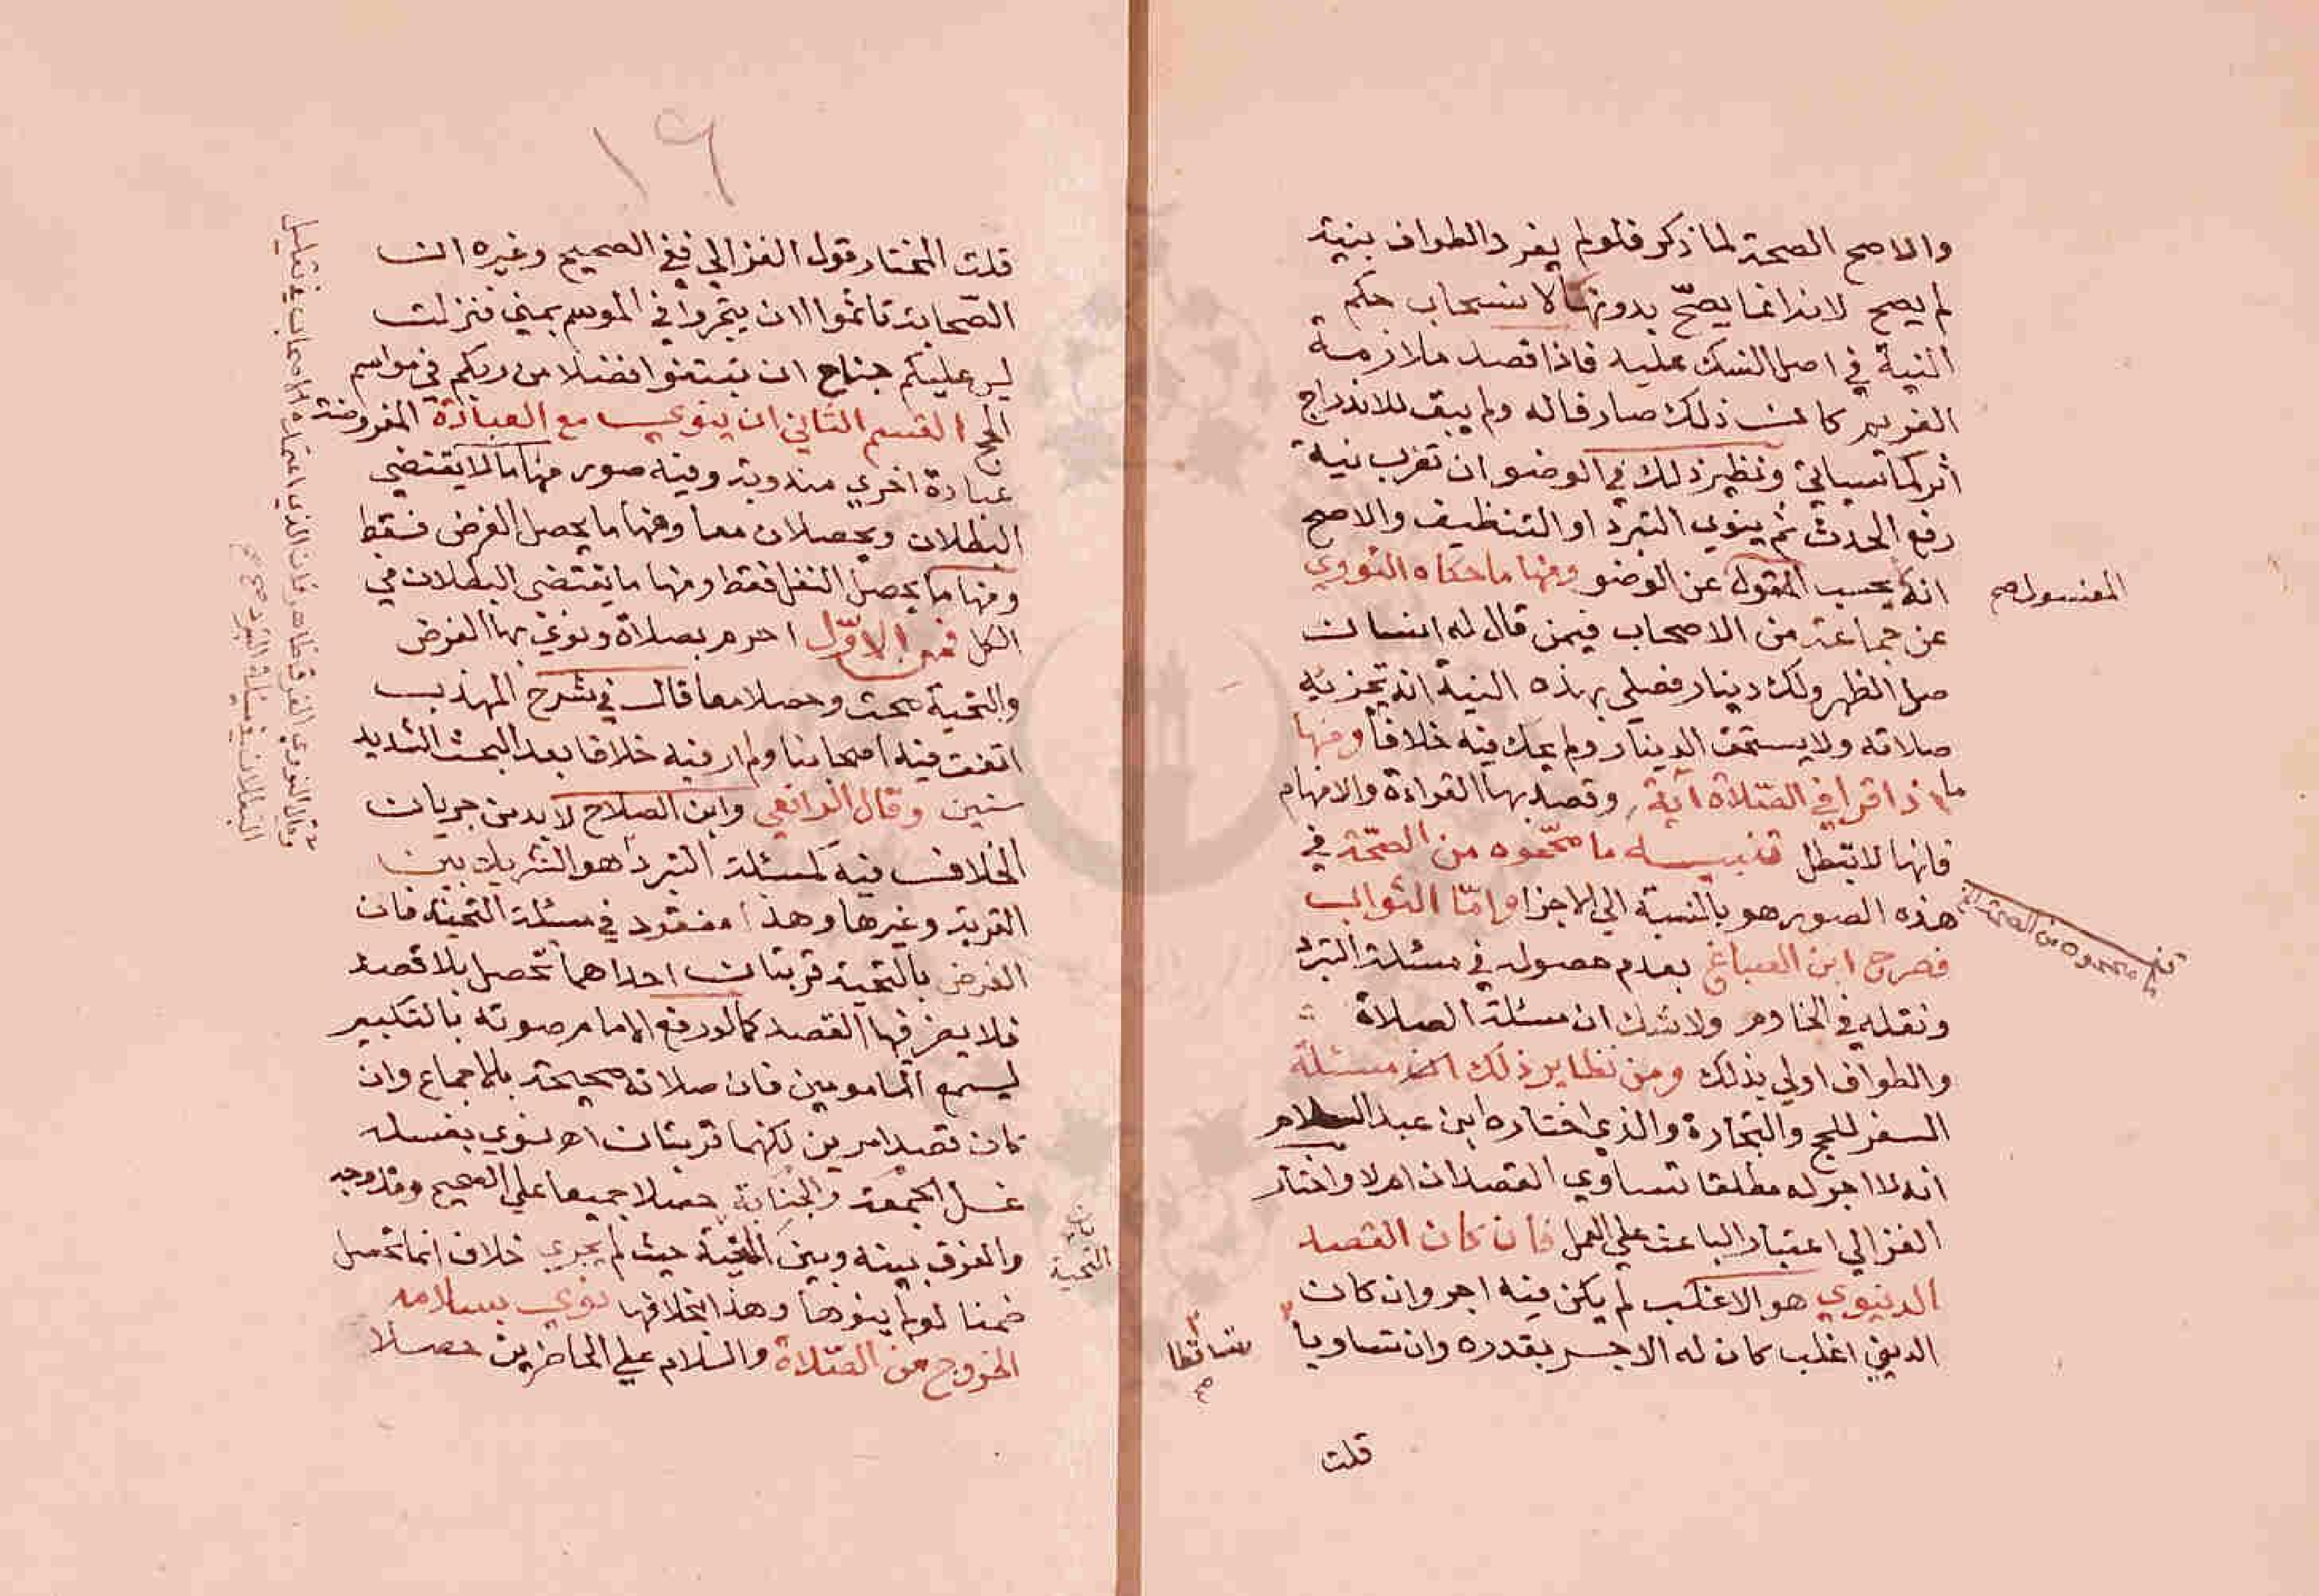 والاصح الصحة لما ذكر فلو لم يفرد الطواف بنية
لم يصح لانه انما يصح بدونها لانسحاب حكم
النية في اصل النسك عليه فاذا قصد ملازمة
الغريم كان ذلك صارفا له ولم يبق للاندراج
اثر كما سياتي ونظير ذلك في الوضو ان تعزب نية
رفع الحدث ثم ينوي التبرد او التنظيف والاصح
انه لا يحسب المغسول عن الوضو ومنها ما حكاه النووي
المغسول صح
عن جماعة من الاصحاب فيمن قال له انسان
صل الظهر ولك دينار فصلى بهذه النية انه تجزيه
صلاته ولا يستحق الدينار ولم يحك فيه خلافا ومنها
ما اذا قرا في الصلاة آية وقصد بها القراءة والافهام
فانها لا تبطل تنبيه ما صححوه من الصحة في
هذه الصور هو بالنسبة الي الاجزا واما الثواب
فصرح ابن الصباغ بعدم حصوله في مسئلة التبرد
ونقله في الخادم ولا شك ان مسئلة الصلاة
والطواف اولي بذلك ومن نظاير ذلك مسئلة
السفر للحج والتجارة والذي اختاره ابن عبد السلام
انه لا اجر له مطلقا تساوي القصدان ام لا واختار
الغزالي اعتبار الباعث علي العمل فان كان القصد
الدنيوي هو الاغلب لم يكن فيه اجر وان كان
الديني اغلب كان له الاجر بقدره وان تساويا
تساقطا
قلت
١٦
قلت المختار قول الغزالي ففي الصحيح وغيره ان
الصحابة تاثموا ان يتجروا في الموسم بمنى فنزلت
ليس عليكم جناح ان تبتغوا فضلا من ربكم في مواسم
الحج القسم الثاني ان ينوي مع العبادة المفروضة
عبادة اخري مندوبة وفيه صور منها ما لا يقتضي
البطلان ويحصلان معا ومنها ما يحصل الفرض فقط
ومنها ما يحصل النفل فقط ومنها ما يقتضي البطلان في
الكل فمن الاول احرم بصلاة ونوي بها الفرض
والتحية صحت وحصلا معا قال في شرح المهذب
اتفق فيه اصحابنا ولم ار فيه خلافا بعد البحث الشديد
سنين وقال الرافعي وابن الصلاح لا بد من جريان
الخلاف فيه كمسئلة التبرد هو التشريك بين
القربة وغيرها وهذا مفقود في مسئلة التحية فان
الفرض بالتحية قربتان احداهما تحصل بلا قصد
فلا يضر فيها القصد كما لو رفع الامام صوته بالتكبير
ليسمع المامومين فان صلاته صحيحة بالاجماع وان
كان قصد امرين لكنهما قربتان اه نوي بغسله
غسل الجمعة والجنابة حصلا جميعا علي الصحيح وفيه وجه
والفرق بينه وبين التحية حيث لم يجري خلاف انما تحصل
بان
التحية
ضمنا لو لم ينوها وهذا بخلافها نوي بسلامه
الخروج من الصلاة والسلام علي الحاضرين حصلا